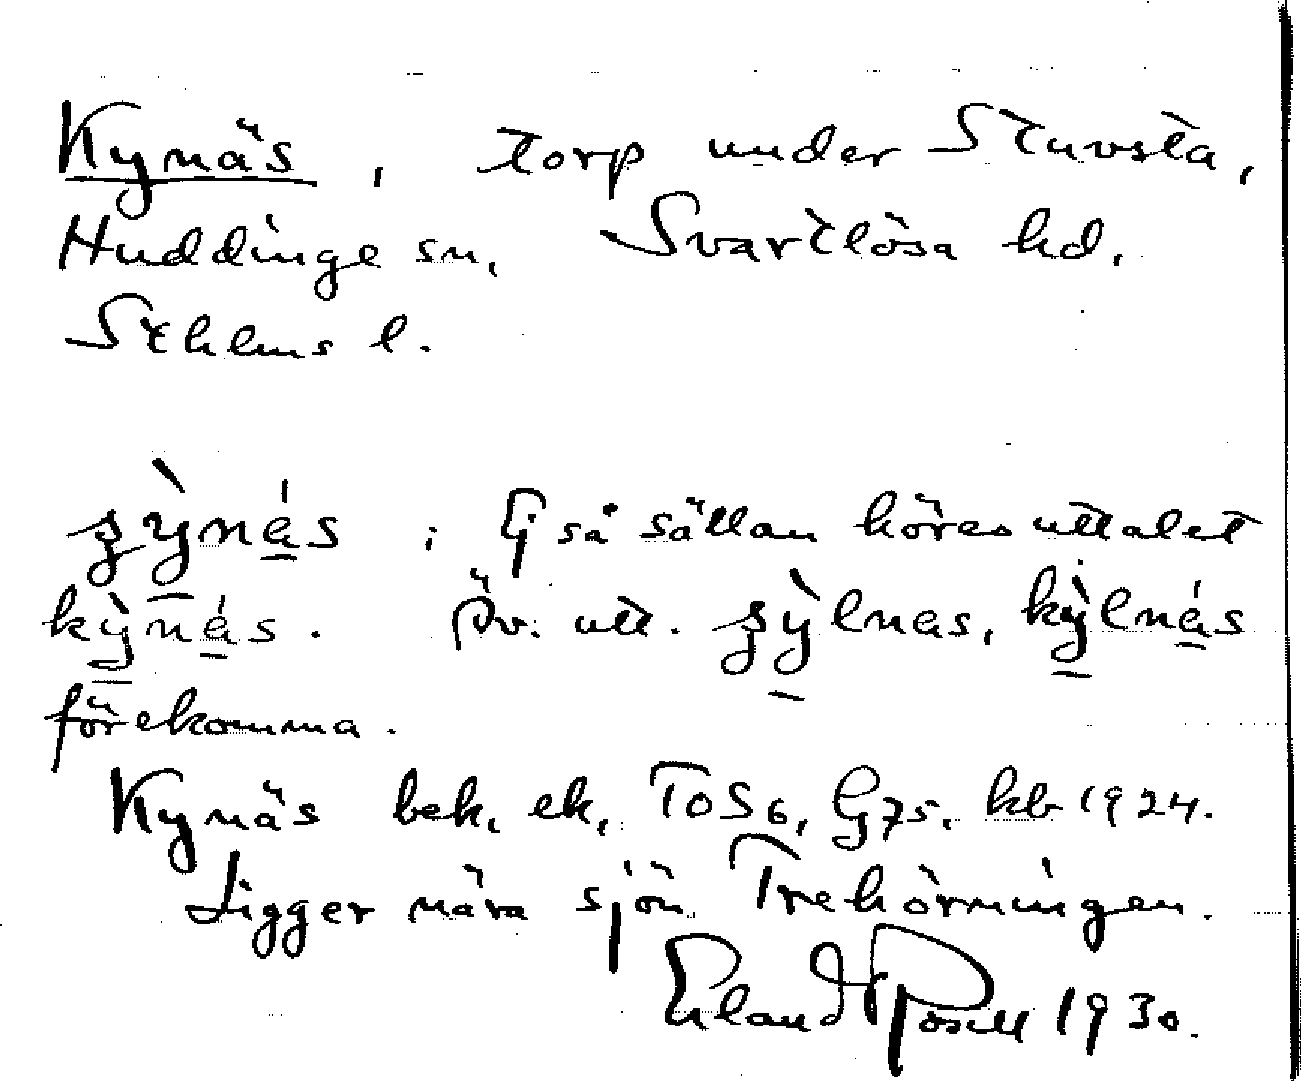 Kynäs, torp under Stuvsta,
Huddinge sn, Svartlösa hd,
Sthlms l.
ʒỳnás ; Ej så sällan höres uttalet
kỳnás. Äv. utt. ʒỳlnas, kỳlnás
förekomma.
Kynäs bek, ek, ToS6, G75, kb 1924.
Ligger nära sjön Trehörningen.
Erland Rosell 1930.